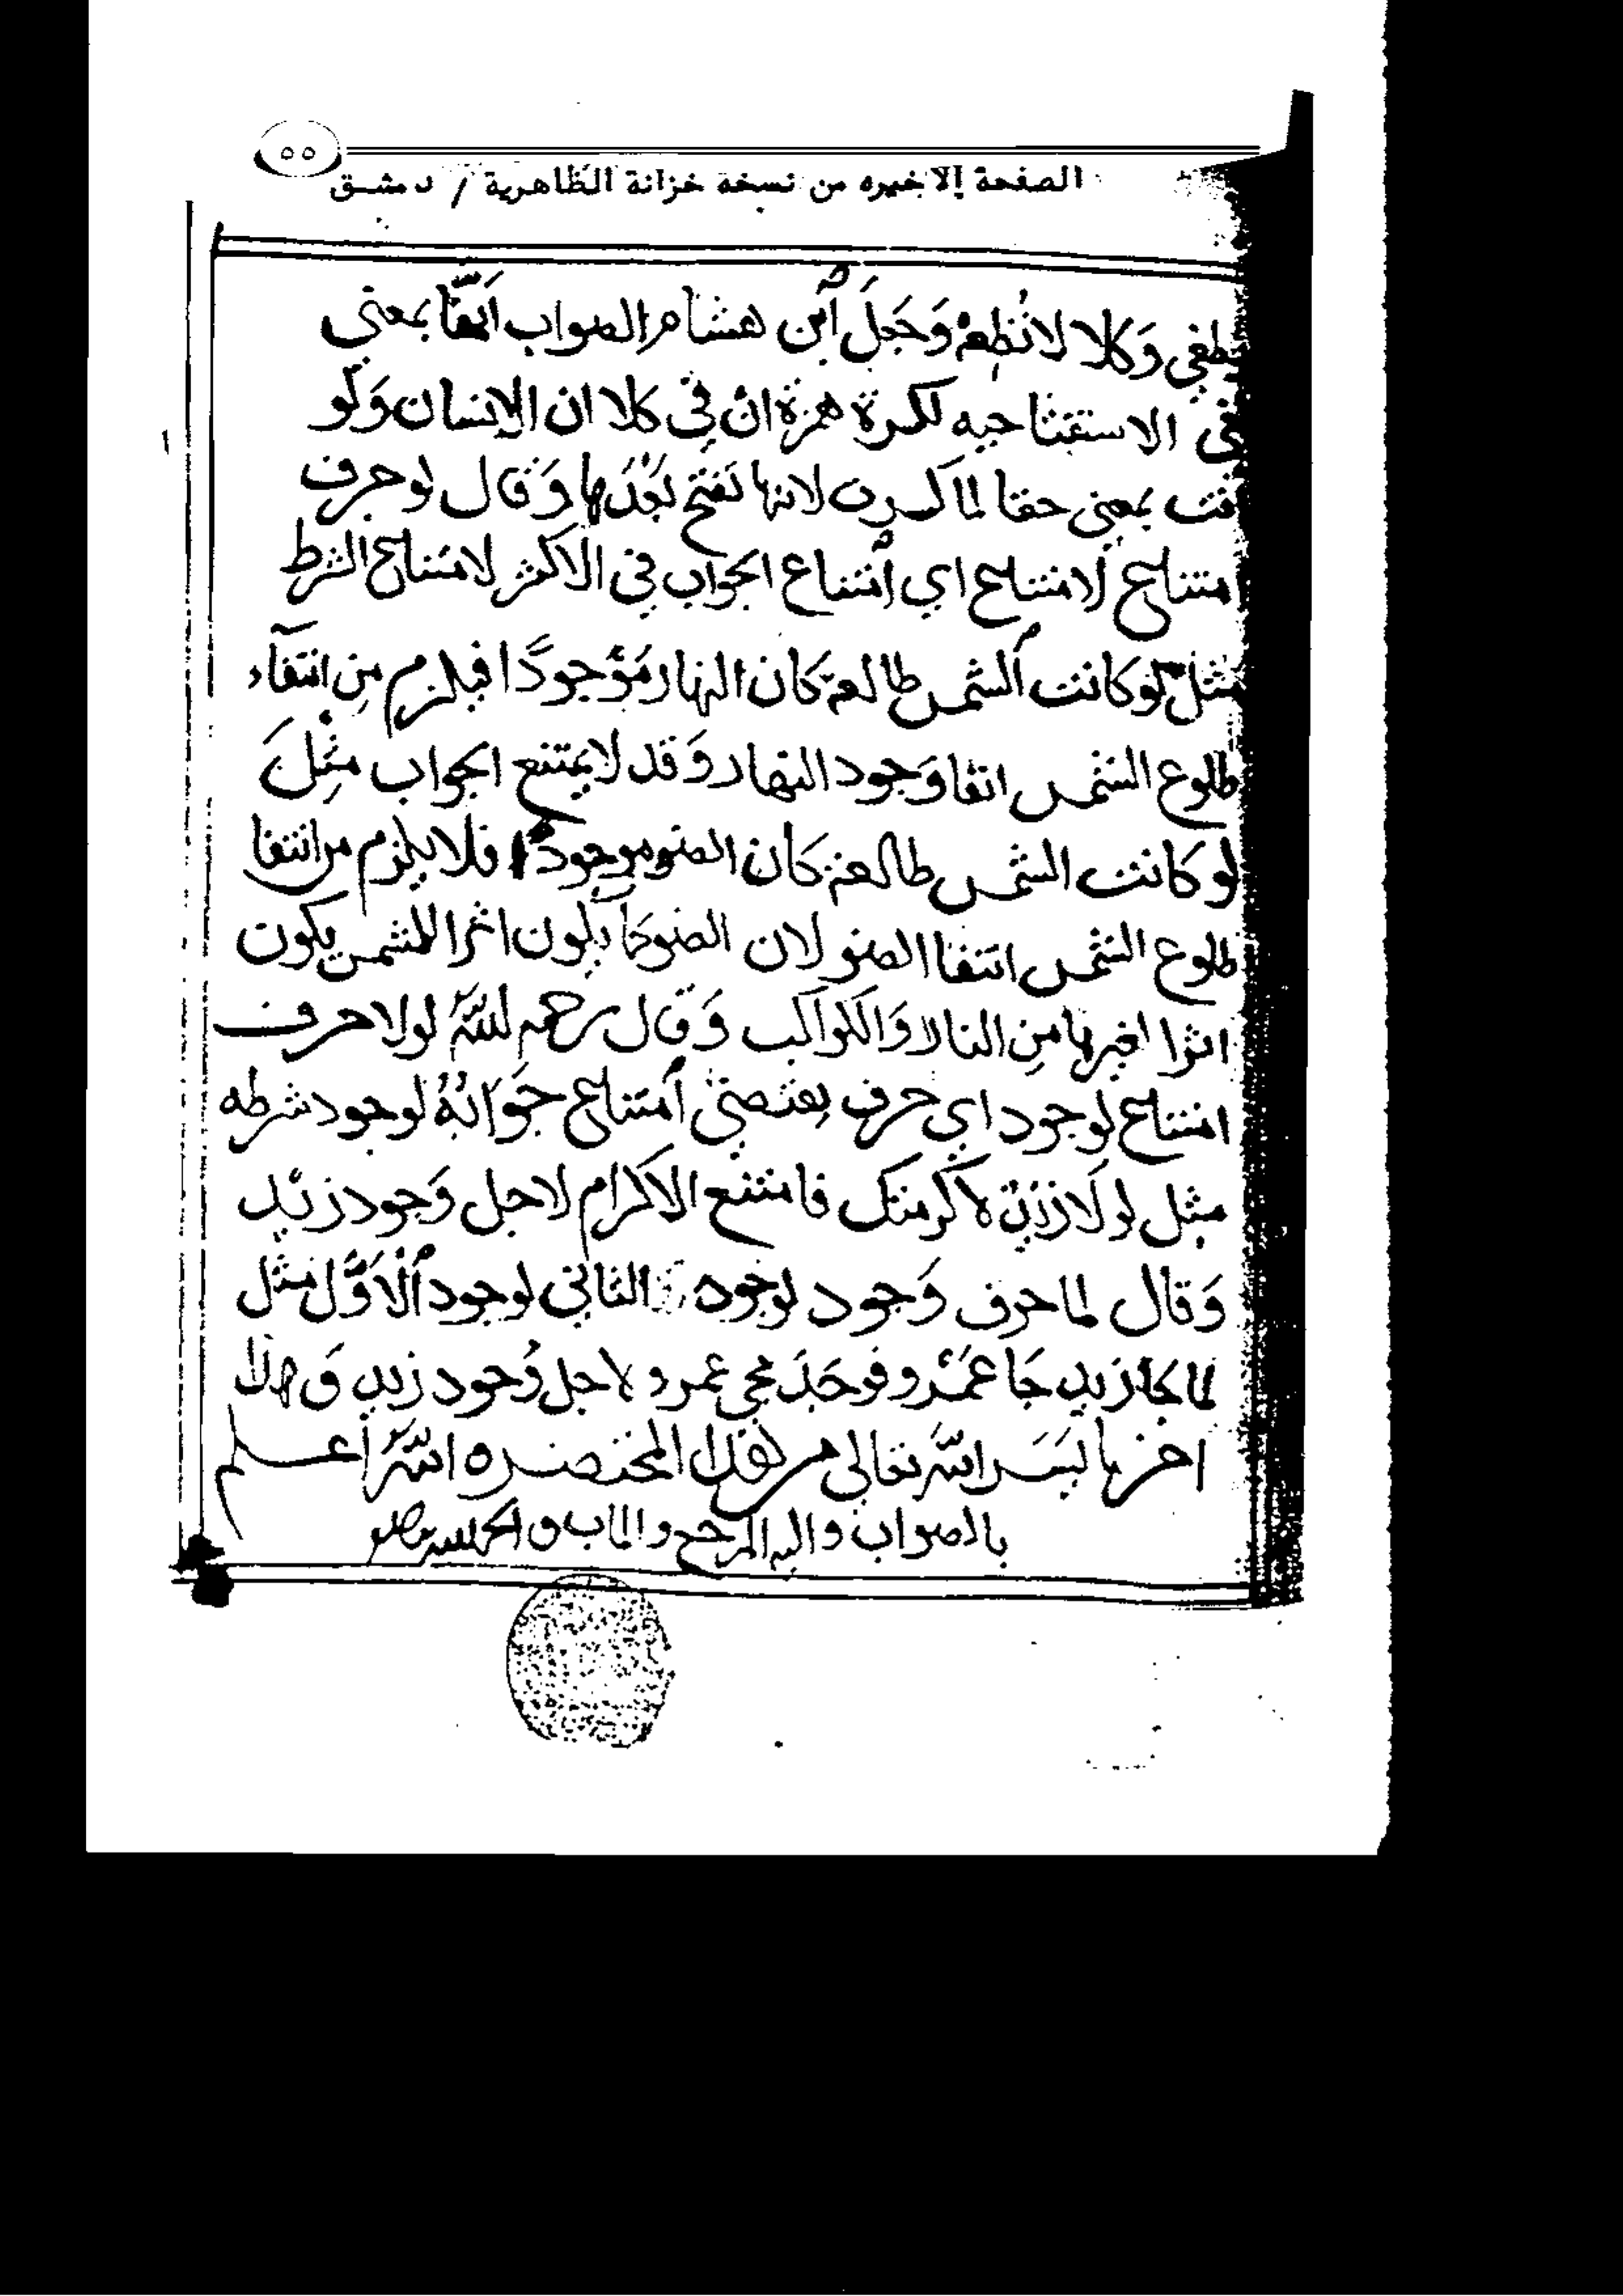 ٥٥
الصفحة الاخيره من نسخة خزانة الظاهرية / دمشق
يطغى وَكلا لا تُطِعْهُ وَجَعَلَ ابن هشام الصواب اَنَّهَا بمعنى
الاستفتاحيه لكسرة همزة ان في كلا ان الانسان وَلو
بمعنى حقا لما كسرت لانها تفتح بَعْدَها وَقال لو حرف
امتناع لامتناع اي امتناع الجواب في الاكثر لامتناع الشرط
مثل لو كانت الشمس طالعة كان النهار مَوْجودًا فيلزم مِن انتفآء
طلوع الشمس انتفا وَجود النهار وَقد لا يمتنع الجواب مثِلَ
لو كانت الشمس طالعة كان الضو موجودًا فلا يلزم من انتفا
طلوع الشمس انتفا الضو لان الضو كما يكون اثرا للشمس يكون
اثرا لغيرها مِن النار وَالكواكب وَقال رحمه اللهُ لولا حرف
امتناع لوجود اي حرف يقتضي امتناع جَوَابُهُ لوجود شرطه
مثل لولَا زَيْدٌ لاكرمتك فامتنع الاكرام لاجل وَجود زيد
وَقال لما حرف وَجود لوجود الثاني لوجود الْاَوَّل مثل
لما جَا زيد جَا عَمْرو فوجَدَ مجي عمرو لاجل وُجود زيد وَهذا
اخر ما يسَّر الله تعالى من نقل المختصر واللهُ اعلم
بالصواب واليه المرجع والماب و